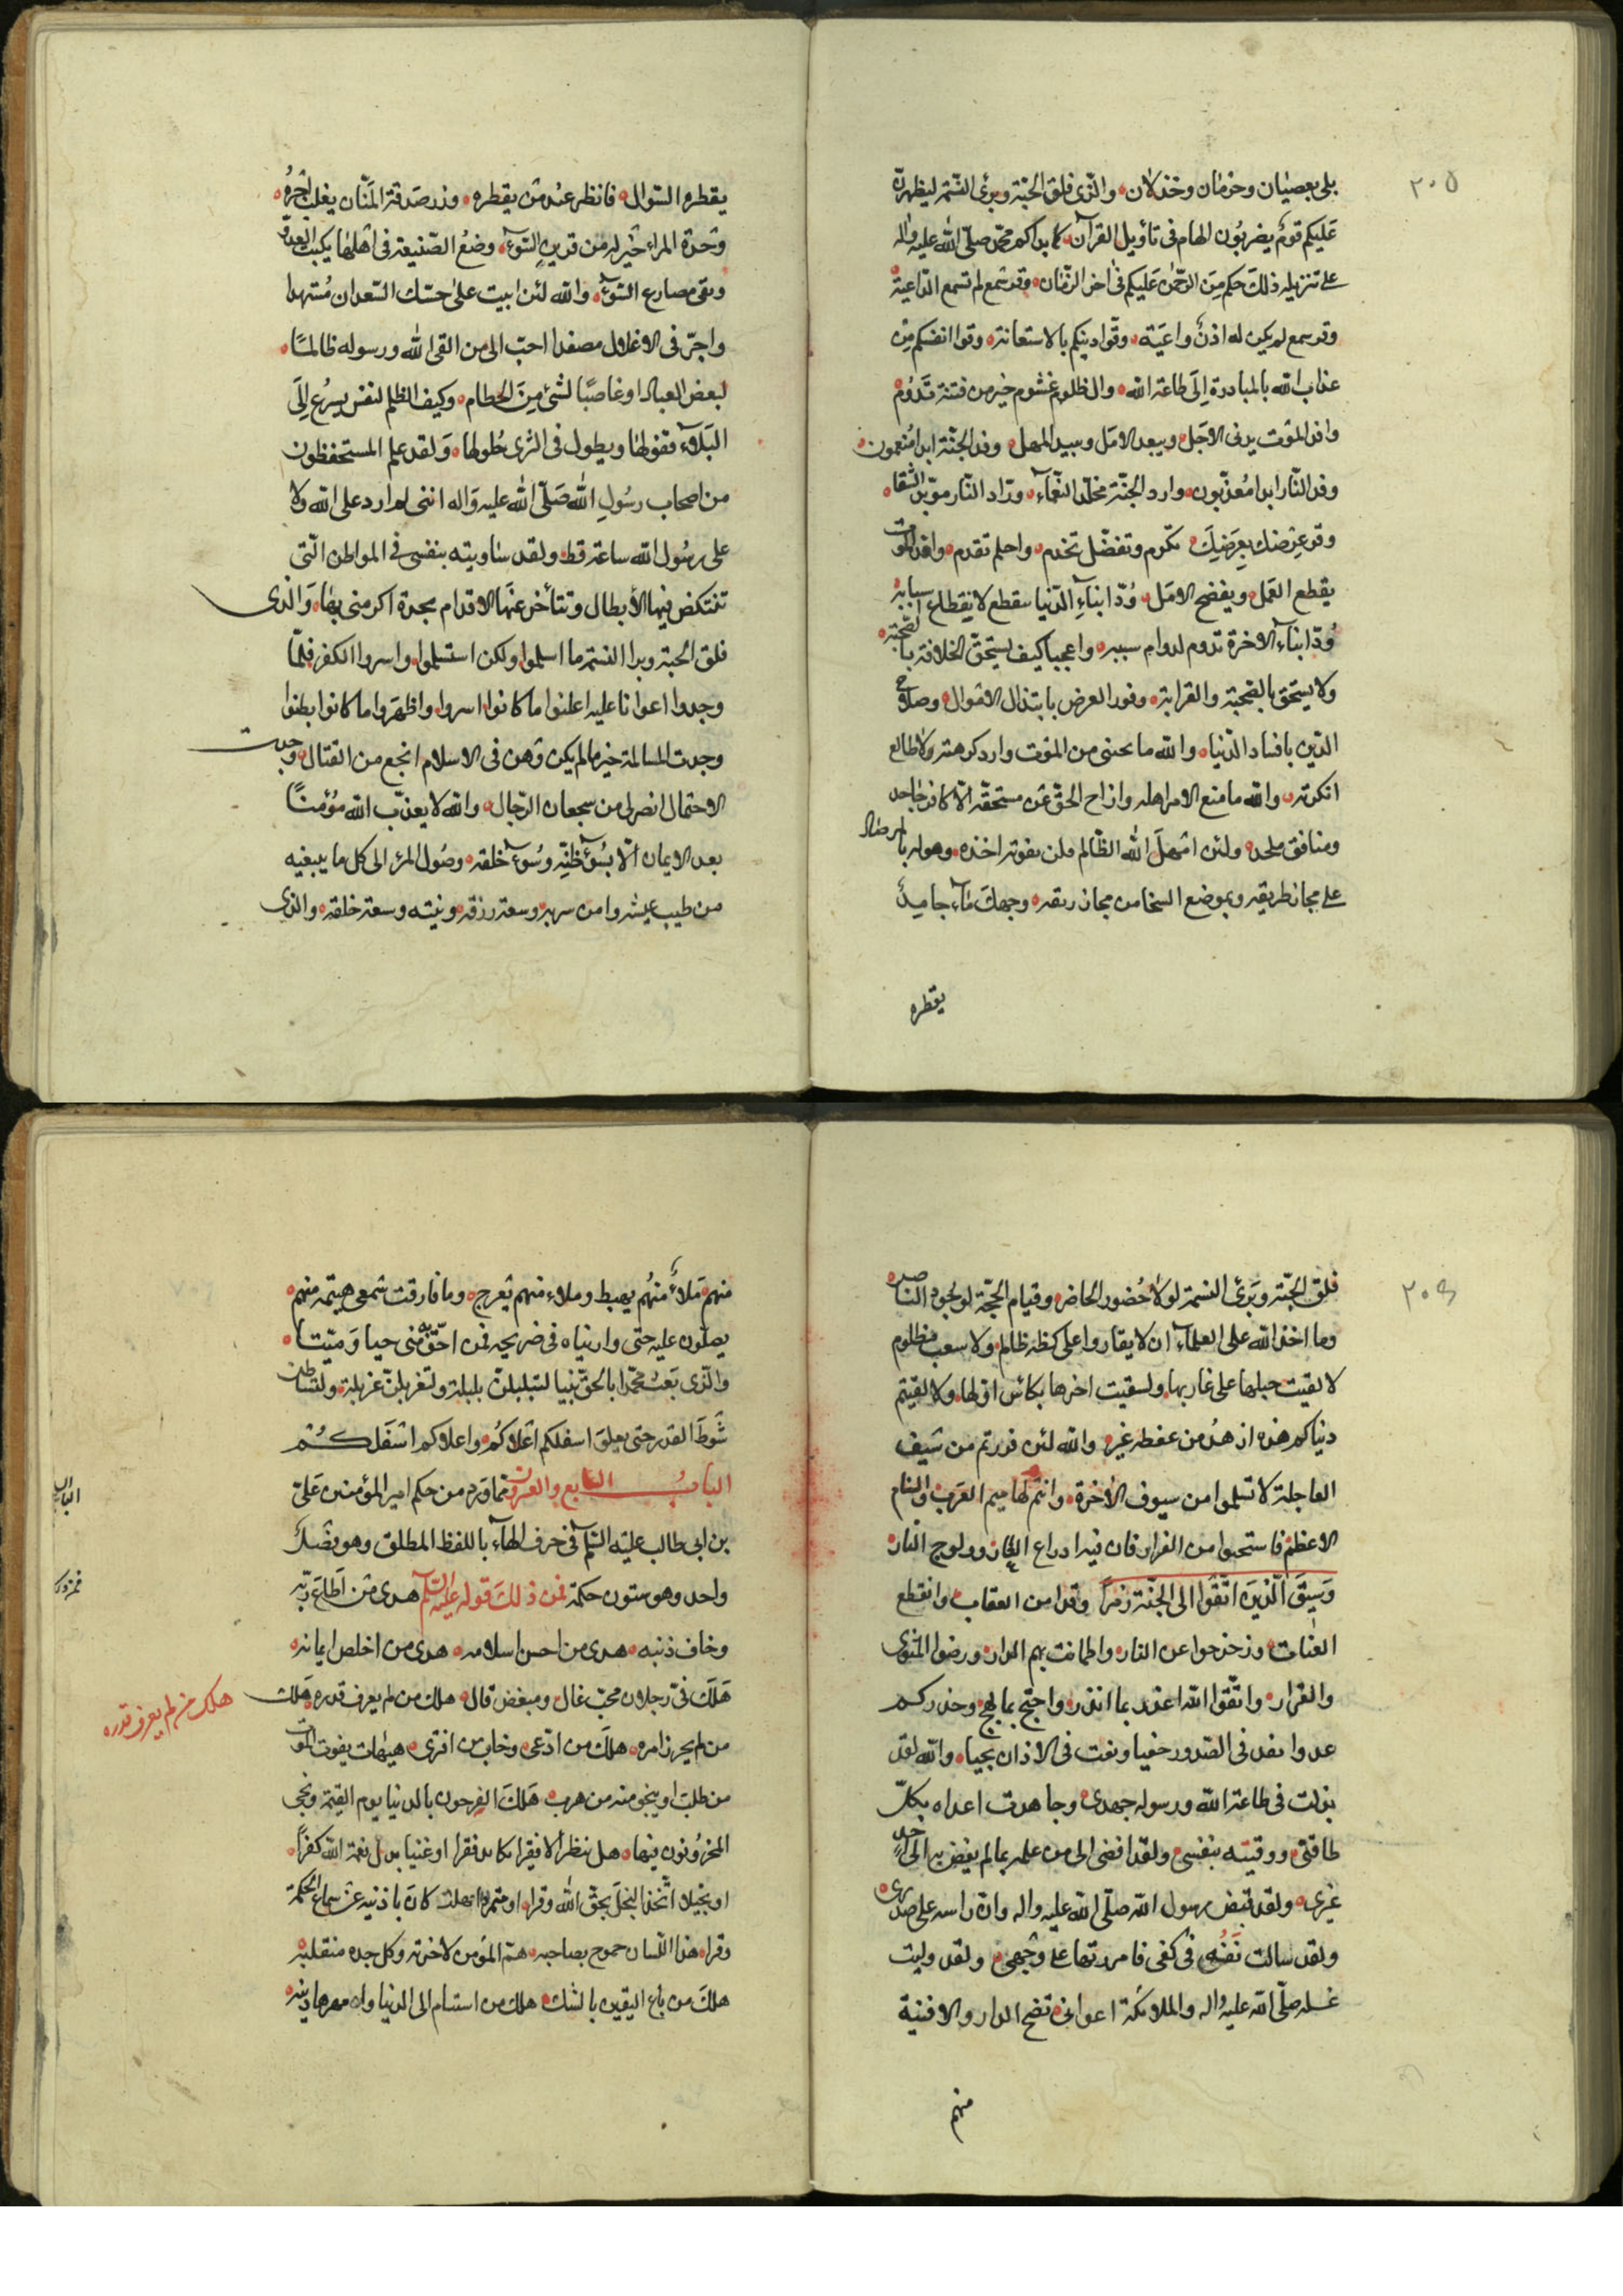 ٢٠٥
بلى بعصيان وحرمان وخذلان والذى فلق الحبّة وبرئ النّسمة ليظهرنّ
عَليكم قومٌ يضربُون الهام فى تأويل القرآن كما بداكم محمّد صلّى الله عليه واله
على تنزيله ذلكَ حكم مِنَ الرّحمٰن عَليكم فى اخر الزّمان وقد سمع لم تسمع الدّاعية
وقد سمع لم يكن له اذنٌ واعَية وقوا دينكم بالاستعانة وقوا انفسكم مِن
عذاب الله بالمبادرة اِلى طاعة الله وال ظلوم غشوم خير من فتنة تَدُوم
وافد الموَت يدنى الاجَل ويبعد الامَل ويبيد المهل وفد الجنّة ابدا مُنعمون
وفد النّار ابدا مُعذّبون وارد الجنّة مخلّد النّعمآء ورّاد النّار موّبد الشّقا
وقر عِرضك بِعَرَضِكَ تكرّم وتفضّل تخدم واحلم تقدم وافد الموت
يقطع العَمل ويفضح الامَل وُدّ ابنآءِ الدّنيا ينقطع لانقطاع سبابه
وُدّ ابنآء الاخرة تدوم لدوام سببه واعجبا كيف يستحقّ الخلافة بالصّحبة
ولا يستحق بالصّحبة والقرابة وفور العرض بابتذال الاموال وصلاح
الدّين بافساد الدّنيا والله ما بحنى من الموَت وارد كرهته ولا طالع
انكرته والله ما منع الامر اهله وازاح الحقّ عَن مستحقّه الّا كافر جاحد
ومنافق ملحد ولئن امهلَ الله الظّالم فلن يفوته اخذه وهو له بالمرصاد
على مجاز طريقه وبموضع الشجا من مجاز ريقه وجهكَ ماء جامِدٌ
يقطره
يقطره السّوال فانظر عند مَن يقطره وزر صَدقة المَنّان يغلب اجْرهُ
وَحْدة المراء خَير له من قرين السّوء وضعُ الصّنيعة فى اهلها يكبت العدوّ
ويقى مصارع السّوء والله لئن ابيت على حسَك السّعدان مُسّهدا
واجرّ فى الاغلال مصفدا احبّ الى من القى الله ورسوله ظالماً
لبعض العباد او غاصبًا لشئ مِنَ الحطام وكيف اظلم لنفس يسرُع اِلَى
البَلاء قفولها ويطول فى الثرى حُلولها وَلقد علم المستحفظون
من اصحاب رسُولِ الله صَلّى الله عليه وَاله اننى لم ارد على الله ولا
على رسُول الله ساعة قط ولقد ساويته بنفسى فى المواطن الّتى
تنتكض فيها الأبطال وتتأخر عنَها الاقدام بجدة اكرمنى بها وَالذى
فلق الحبة وبرا النسمة ما اسلموا ولكن استسلموا واسروا الكفر فلمّا
وجدوا اعوانا عليه اعلنوا ما كانوا اسروا واظهَروا ما كانوا بطنوا
وجدت المسالمة خير ما لم يكن وَهن فى الاسلام انجع من القتال وجدت
الاحتمال انصر لى من سجعان الرّجال والله لا يعذّب الله مؤمنًا
بعد الايمان الّا بسُوٓء ظنّه وسُوٓء خلقه وصُول المرَء الى كل ما يبتغيه
من طيب عيشه وامن سربه وسعة رزقه ونيته وسعة خلقه والذى
٢٠٦
فلق الحبّة وبَرئ النسمة لولا حُضور الحاضر وقيام الحجّة لوُجود الناصر
وما اخذ الله على العلماء ان لا يقاروا على كظة ظالم ولا سعب مظلوم
لا لقيت حبلها على غاربها ولسقيت اخرها بكأس اوّلها ولا لفيتم
دنياكم هذه ازهدُ من عفطة غيره والله لئن فررتم من سَيف
العاجلة لا تسلموا من سيوف الاٰخرة وانتم لهاميم العَرب والسنام
الاعظم فاستحيوا من الفرار فان فيه ادراع العار وولوج النار
وَسيقَ الّذينَ اتّقَوا الى الجنّة زمراً وقد امن العقاب وانقطع
العتاب وزحزحوا عن النار واطمانت بهم الدار ورضوا المثوى
والقرار واتّقوا الله اعذر بما انذر واحتج بما نهج وحذركم
عدوا نفذ فى الصّدور خفيا ونفث فى الاذان نجيا والله لقد
بذلت فى طاعة الله ورسوله جهدى وجاهدت اعداه بكلّ
طاقتى ووقيته بنفسى ولقد افضى الى من علمه بما لم يفض به الى احدٍ
غيرى ولقد قبض رسول الله صلّى الله عليه واله وانّ راسه على صدرى
ولقد سالت نَفسُه فى كفى فامررتها على وَجهى ولقد وليت
غسله صلّى الله عليه واله والملائكة اعوانى تضج الدار والافنية
منهم
منهم مَلاءٌ منهُم يهبط وملاء منهم يَعرج وما فارقت سَمعى هيتمة منهم
يصلّون عليه حتى واريناه فى ضريحه فمن احّقّ به منى حيا وَميّتا
والّذى بَعث محمّدا بالحقّ نبيا لتبلبلنّ بلبلة ولتغربلنّ غربلة ولتساطن
سَوطَ القدر حتى يعلوَ اسفلكم اعَلاكُم واعلاكم اسْفَلكُم
البَابُ التّاسع والعشرون فما وَرد من حكم امير المؤمنين عَلىّ
بن ابى طالب عليْه السَّلام فى حَرف الهآء باللفظ المطلق وهو فصْلٌ
واحد وهو ستون حكمة فمن ذلكَ قوله عليْه السّلام هدى مَن اطَاع ربّه
وخاف ذنبه هدى من احسن اسلامه هدى من اخلص ايمانه
هَلَكَ فىّ رجلان محبّ غال ومبغض قال هلك من لم يعرف قدره هَلك
من لم يحرز امره هلَكَ من ادّعى وخاب من افترى هيهات يفوت المَوت
من طلبَ او ينجو منه من هرب هَلكَ الفرحون بالدنيا يوم القيٰمة ونجى
المحزُونون فيها هل ينظر الا فقيرا يكابد فقرا او غنيا بدل نعمة الله كفرًا
او بخيلا اتّخذ البخلَ بحقّ الله وقرا او متمردا كانَ باذنيه عن سماع الحكمة
وقرا هذا اللّسان جموح بصاحبه همّ المؤمن لاخرته وكل جده منقلبه
هلكَ من باع اليقين بالشك هلك من استنام الى الدنيا وامهرها دينه
هلك من لم يعرف قدره